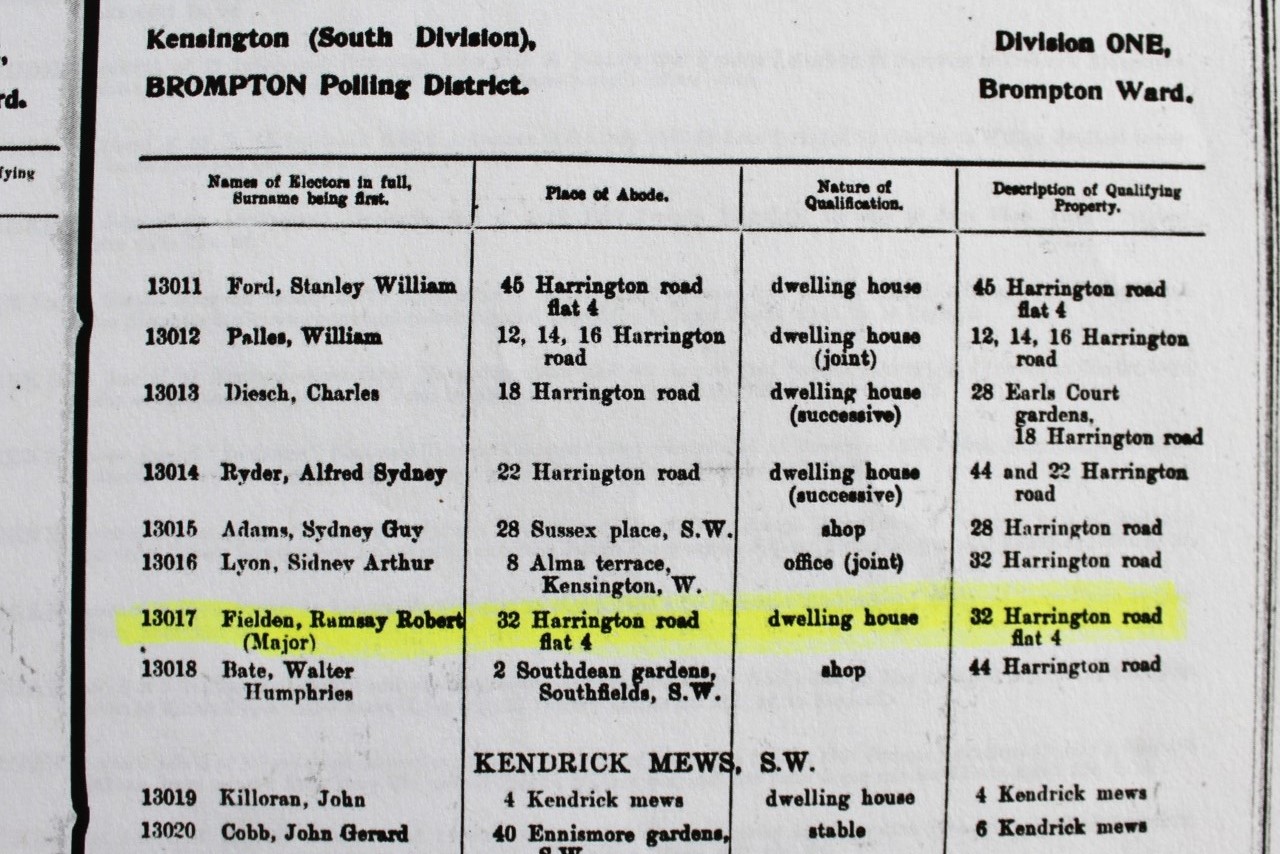 rd.
fying
Kensington (South Division),
BROMPTON Polling District.
Division ONE,
Brompton Ward.
Names of Electors in full, Surname being first. Place of Abode. Nature of Qualification. Description of Qualifying Property.
13011 Ford, Stanley William 45 Harrington road dwelling house 45 Harrington road
flat 4 flat 4
13012 Palles, William 12, 14, 16 Harrington dwelling house 12, 14, 16 Harrington
road (joint) road
13013 Diesch, Charles 18 Harrington road dwelling house 28 Earls Court
(successive) gardens,
18 Harrington road
13014 Ryder, Alfred Sydney 22 Harrington road dwelling house 44 and 22 Harrington
(successive) road
13015 Adams, Sydney Guy 28 Sussex place, S.W. shop 28 Harrington road
13016 Lyon, Sidney Arthur 8 Alma terrace, office (joint) 32 Harrington road
Kensington, W.
13017 Fielden, Ramsay Robert 32 Harrington road dwelling house 32 Harrington road
(Major) flat 4 flat 4
13018 Bate, Walter 2 Southdean gardens, shop 44 Harrington road
Humphries Southfields, S.W.
KENDRICK MEWS, S.W.
13019 Killoran, John 4 Kendrick mews dwelling house 4 Kendrick mews
13020 Cobb, John Gerard 40 Ennismore gardens, stable 6 Kendrick mews
S.W.